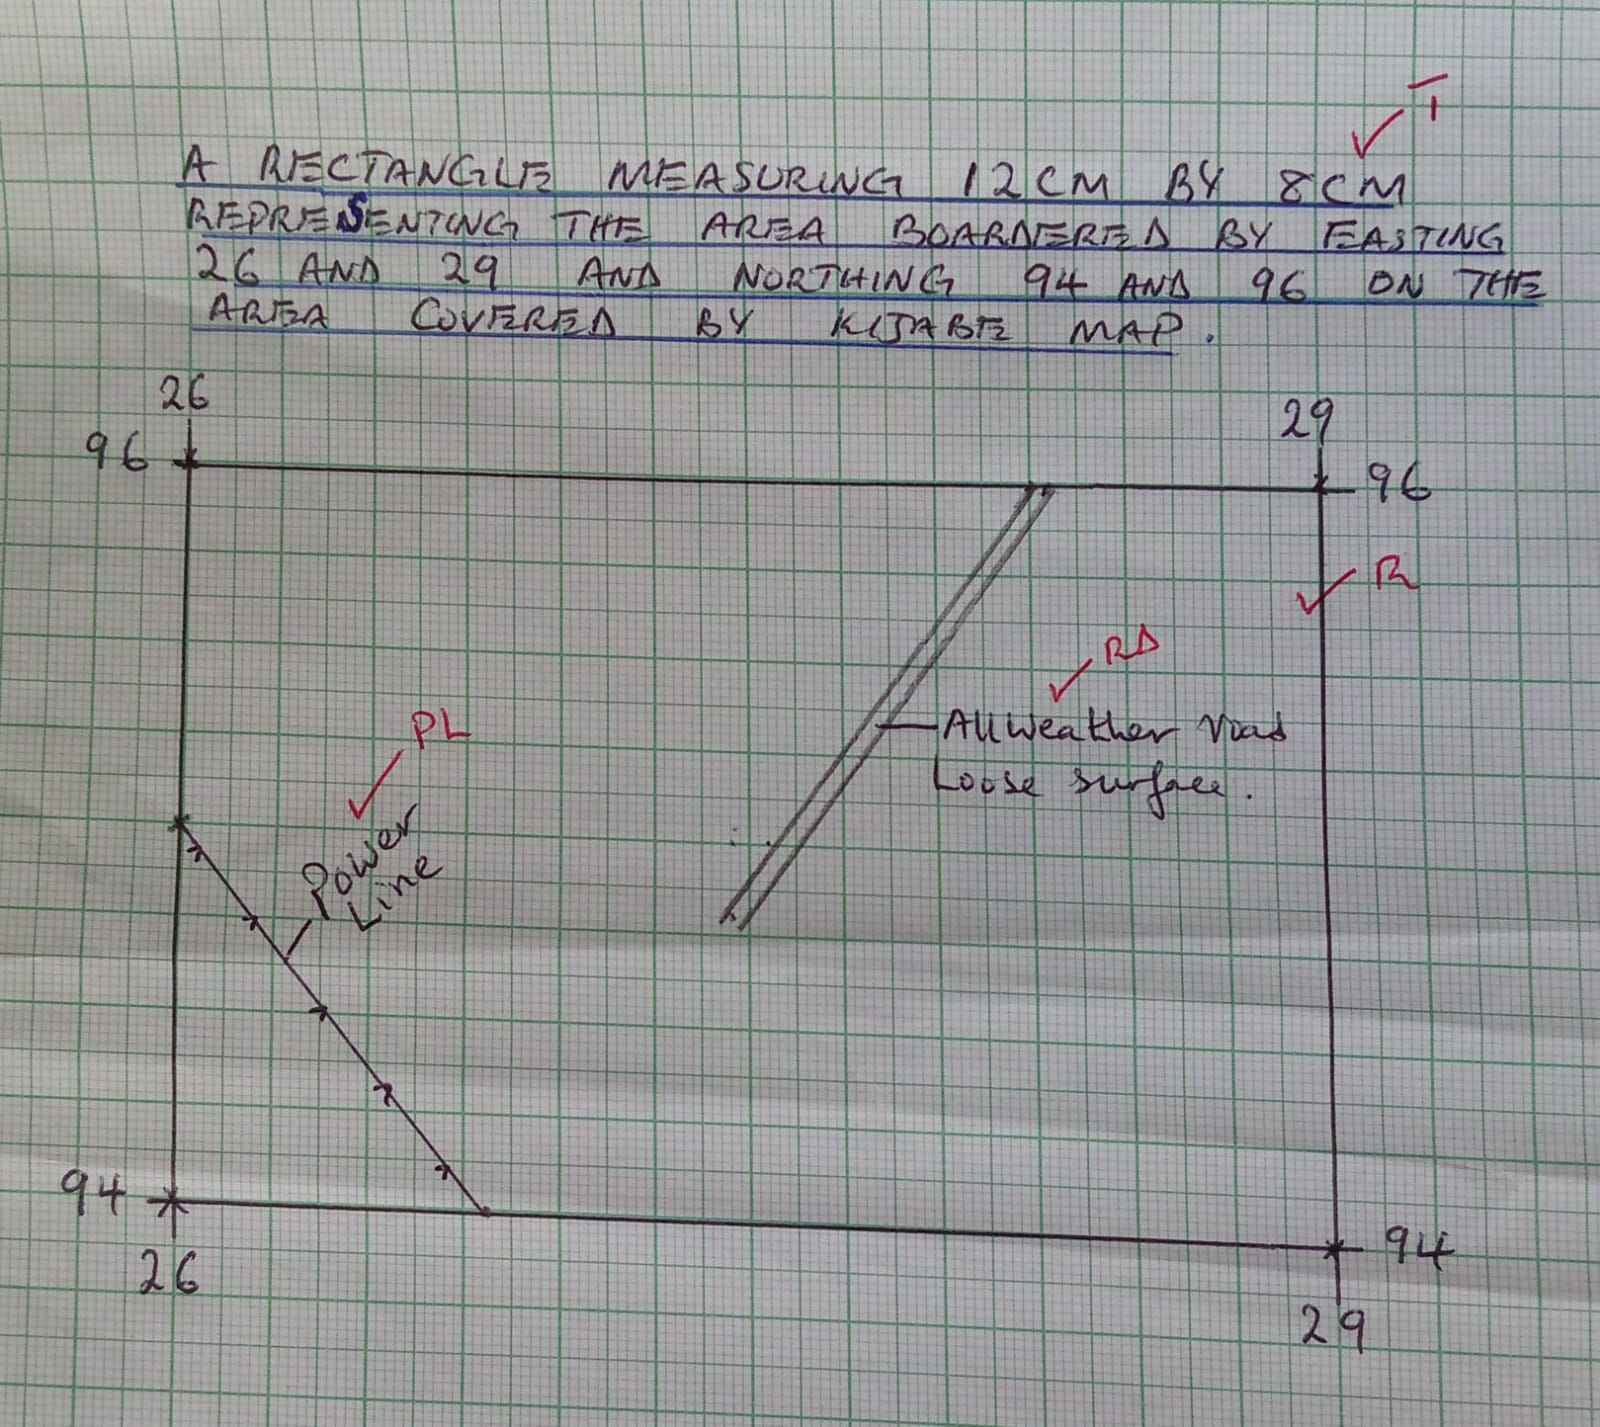 T
A RECTANGLE MEASURING 12CM BY 8CM
REPRESENTING THE AREA BOARDERED BY EASTING
26 AND 29 AND NORTHING 94 AND 96 ON THE
AREA COVERED BY KIJABE MAP.
26
29
96
96
R
RD
PL
All weather road
Loose surface.
Power
Line
94
94
26
29